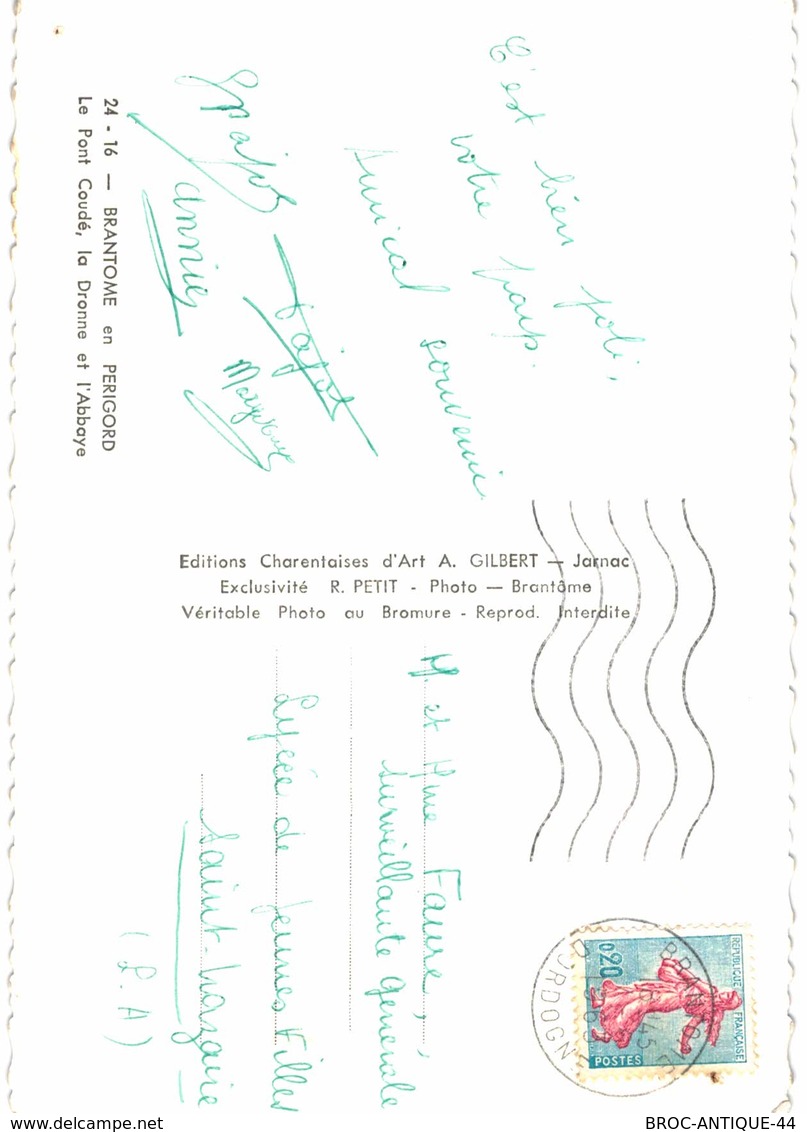 C'est bien joli,
votre pays.
Amical souvenir
Annie
24 - 16 — BRANTOME en PERIGORD
Le Pont Coudé, la Dronne et l'Abbaye
Editions Charentaises d'Art A. GILBERT — Jarnac
Exclusivité R. PETIT - Photo — Brantôme
Véritable Photo au Bromure - Reprod. Interdite
REPUBLIQUE FRANÇAISE
0,20
POSTES
M. et Mme Faure
Surveillante Générale
Lycée de Jeunes Filles
Saint-Nazaire
(L. A)
BROC-ANTIQUE-44